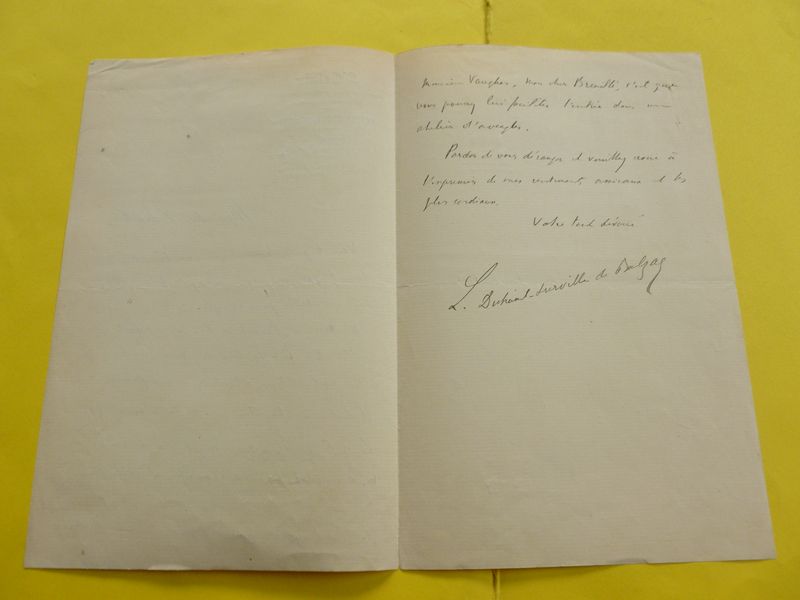 Monsieur Vaughan, mon cher Brenille, c'est que
vous pourrez lui faciliter l'entrée dans un
atelier d'aveugles.
Pardon de vous déranger et veuillez croire à
l'expression de mes sentiments amicaux et les
plus cordiaux.
Votre tout dévoué
L. Duhamel-Surville de Balzac